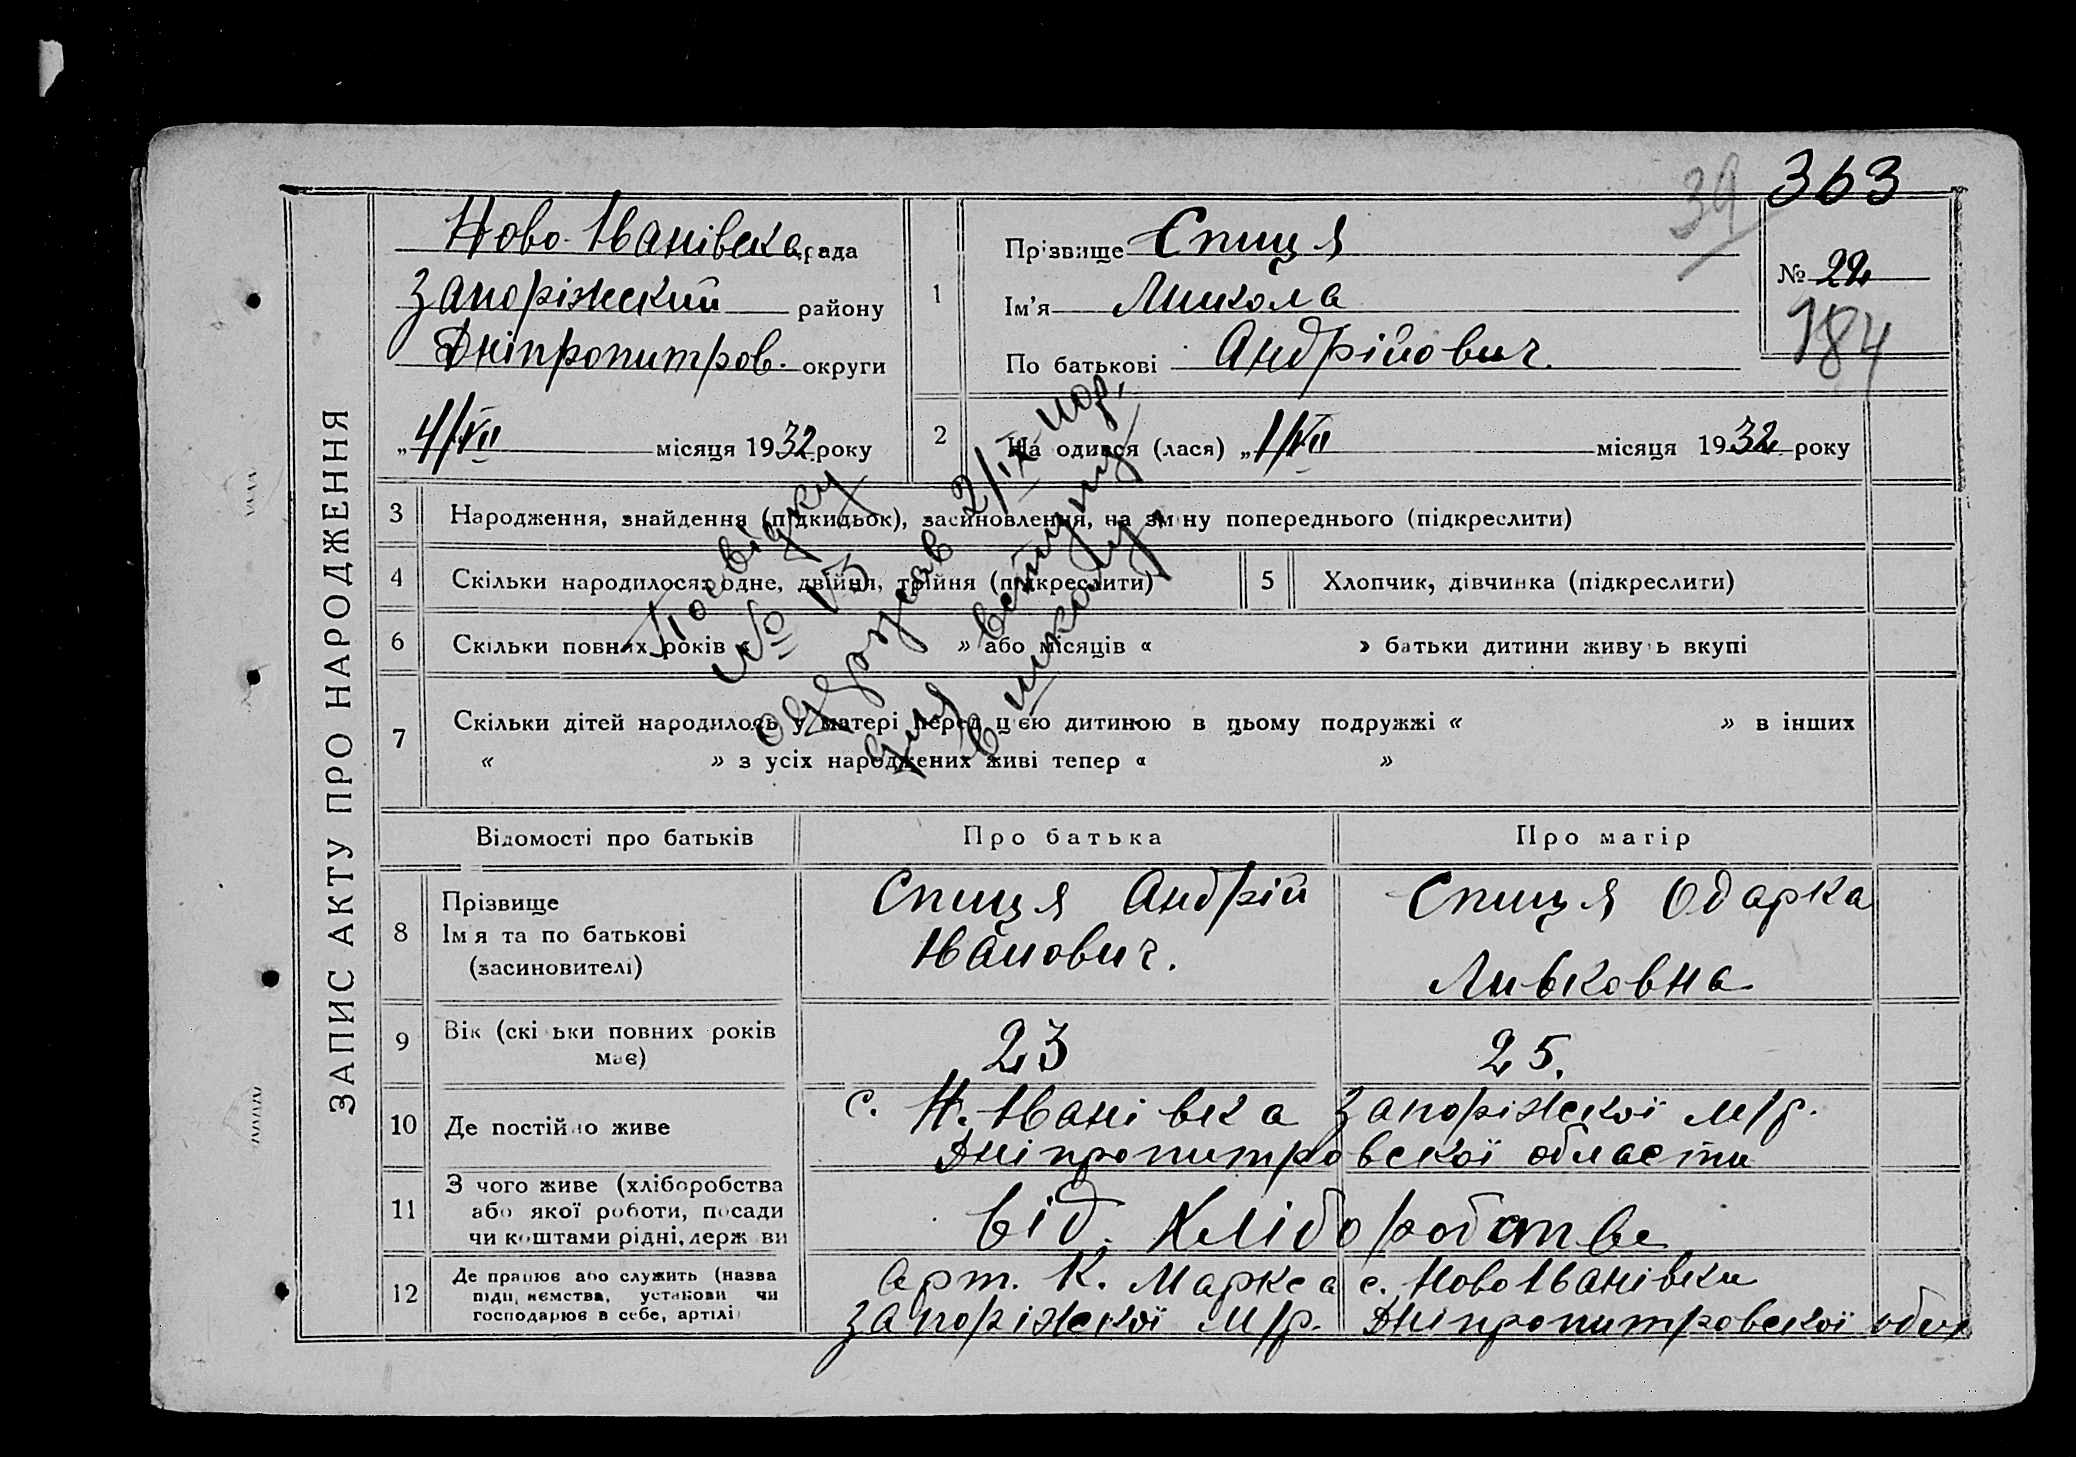 39 363
Ново-Іванівска рада
Запоріжский району
Дніпропитров. округи
„4/VII місяця 1932 року
1
Прізвище Спиця
Ім'я Микола
По батькові Андрійович.
№ 22
184
2
На одився (лася) „1/VII місяця 1932 року
ЗАПИС АКТУ ПРО НАРОДЖЕННЯ
3 Народження, знайдення (підкидьок), засиновлення, на зміну попереднього (підкреслити)
4 Скільки народилося: одне, двійня, трійня (підкреслити)
5 Хлопчик, дівчинка (підкреслити)
6 Скільки повних років « » або місяців « » батьки дитини живуть вкупі
7 Скільки дітей народилось у матері перед цією дитиною в цьому подружжі « » в інших
« » з усіх народжених живі тепер « »
Посвідку
№ 173
одержав 2/IX
для вступу
в школу
Відомості про батьків
Про батька
Про матір
8 Прізвище
Ім'я та по батькові
(засиновителі)
Спиця Андрій
Іванович.
Спиця Одарка
Ливковна
9 Вік (скільки повних років
має)
23
25.
10 Де постійно живе
с. Н. Іванівка Запоріжскої м/р.
Дніпропитровскої области
11 З чого живе (хліборобства
або якої роботи, посади
чи коштами рідні, держави
від. Хліборобства
12 Де працює або служить (назва
підприємства, установи чи
господарює в себе, артілі)
Арт. К. Маркса с. Ново Іванівки
Запоріжскої м/р. Дніпропитровскої обл